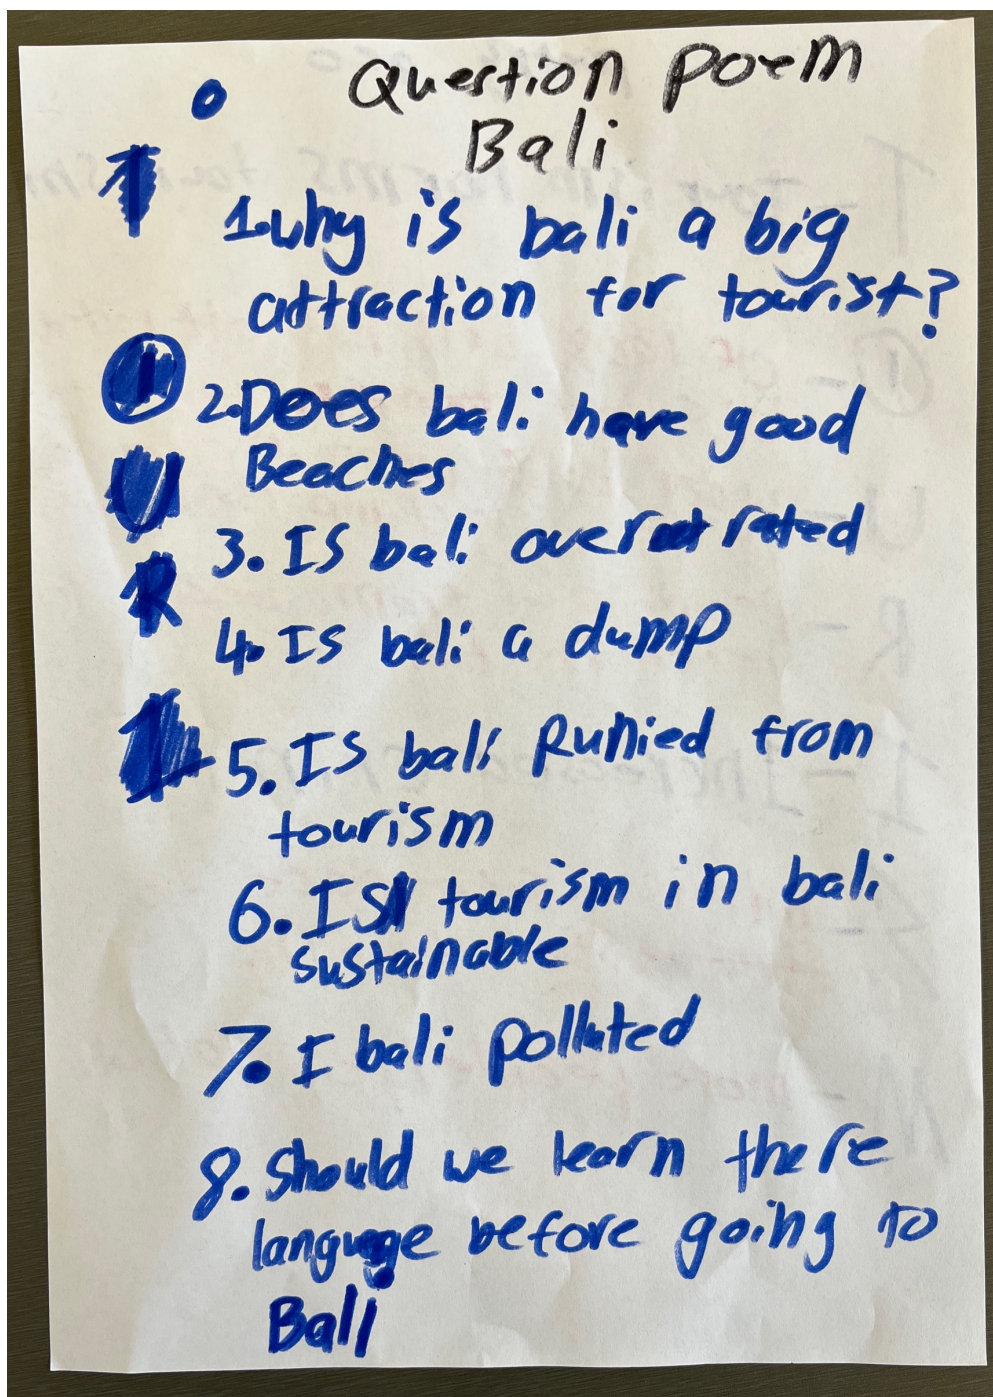 Question Poem
Bali
1. why is bali a big
attraction for tourist?
2. Does bali have good
Beaches
3. Is bali over rated
4. Is bali a dump
5. Is bali Runied from
tourism
6. Is tourism in bali
sustainable
7. I bali polluted
8. Should we learn there
language before going to
Bali